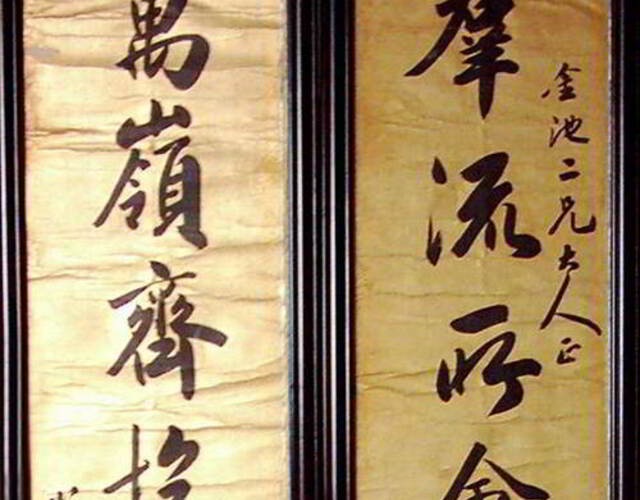 金池二兄大人正
羣流所會
萬嶺齊